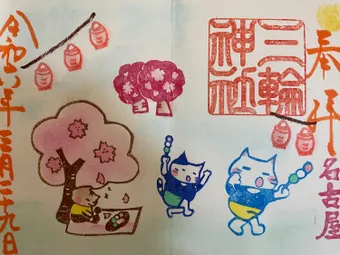 奉拝
名古屋
三輪
神社
令和年三月二十九日